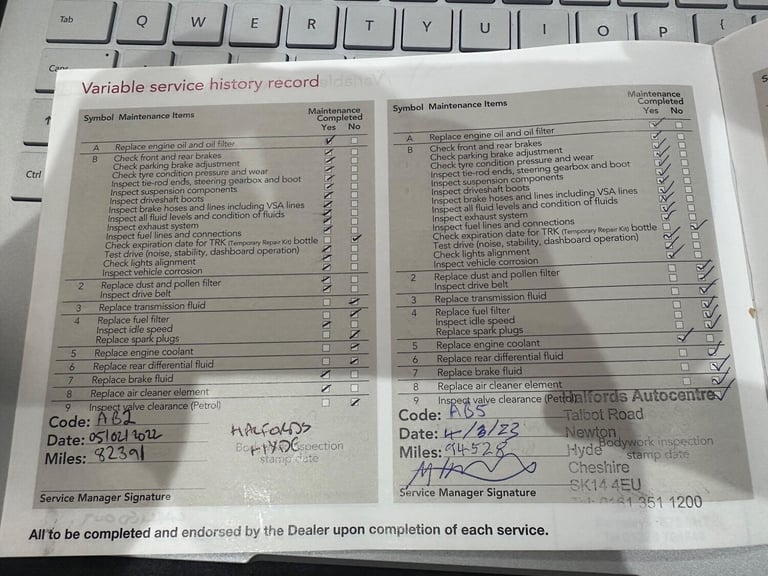 Tab
Q
W
E
R
T
Y
U
I
O
P
{
Ctrl
Variable service history record
Symbol Maintenance Items
Maintenance
Completed
Yes No
A Replace engine oil and oil filter
B Check front and rear brakes
Check parking brake adjustment
Check tyre condition pressure and wear
Inspect tie-rod ends, steering gearbox and boot
Inspect suspension components
Inspect driveshaft boots
Inspect brake hoses and lines including VSA lines
Inspect all fluid levels and condition of fluids
Inspect exhaust system
Inspect fuel lines and connections
Check expiration date for TRK (Temporary Repair Kit) bottle
Test drive (noise, stability, dashboard operation)
Check lights alignment
Inspect vehicle corrosion
2 Replace dust and pollen filter
Inspect drive belt
3 Replace transmission fluid
4 Replace fuel filter
Inspect idle speed
Replace spark plugs
5 Replace engine coolant
6 Replace rear differential fluid
7 Replace brake fluid
8 Replace air cleaner element
9 Inspect valve clearance (Petrol)
Code: AB2
Date: 05/02/2022
Miles: 82391
HALFORDS
HYDE
Bodywork inspection
stamp date
Service Manager Signature
Symbol Maintenance Items
Maintenance
Completed
Yes No
A Replace engine oil and oil filter
B Check front and rear brakes
Check parking brake adjustment
Check tyre condition pressure and wear
Inspect tie-rod ends, steering gearbox and boot
Inspect suspension components
Inspect driveshaft boots
Inspect brake hoses and lines including VSA lines
Inspect all fluid levels and condition of fluids
Inspect exhaust system
Inspect fuel lines and connections
Check expiration date for TRK (Temporary Repair Kit) bottle
Test drive (noise, stability, dashboard operation)
Check lights alignment
Inspect vehicle corrosion
2 Replace dust and pollen filter
Inspect drive belt
3 Replace transmission fluid
4 Replace fuel filter
Inspect idle speed
Replace spark plugs
5 Replace engine coolant
6 Replace rear differential fluid
7 Replace brake fluid
8 Replace air cleaner element
9 Inspect valve clearance (Petrol)
Code: AB5
Date: 4/3/23
Miles: 94528
Halfords Autocentre
Talbot Road
Newton
Hyde
Cheshire
SK14 4EU
Tel: 0161 351 1200
Bodywork inspection
stamp date
Service Manager Signature
All to be completed and endorsed by the Dealer upon completion of each service.